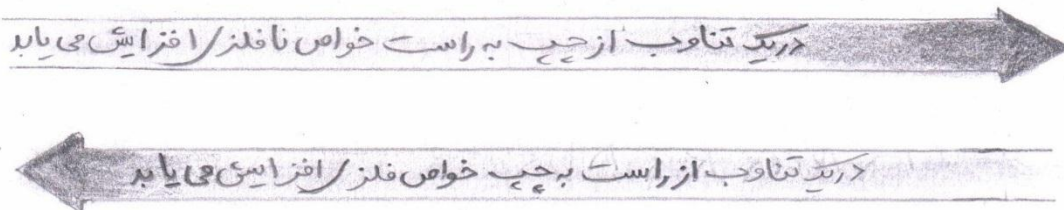 در یک تناوب از چپ به راست خواص نافلزی افزایش می یابد
در یک تناوب از راست به چپ خواص فلزی افزایش می یابد